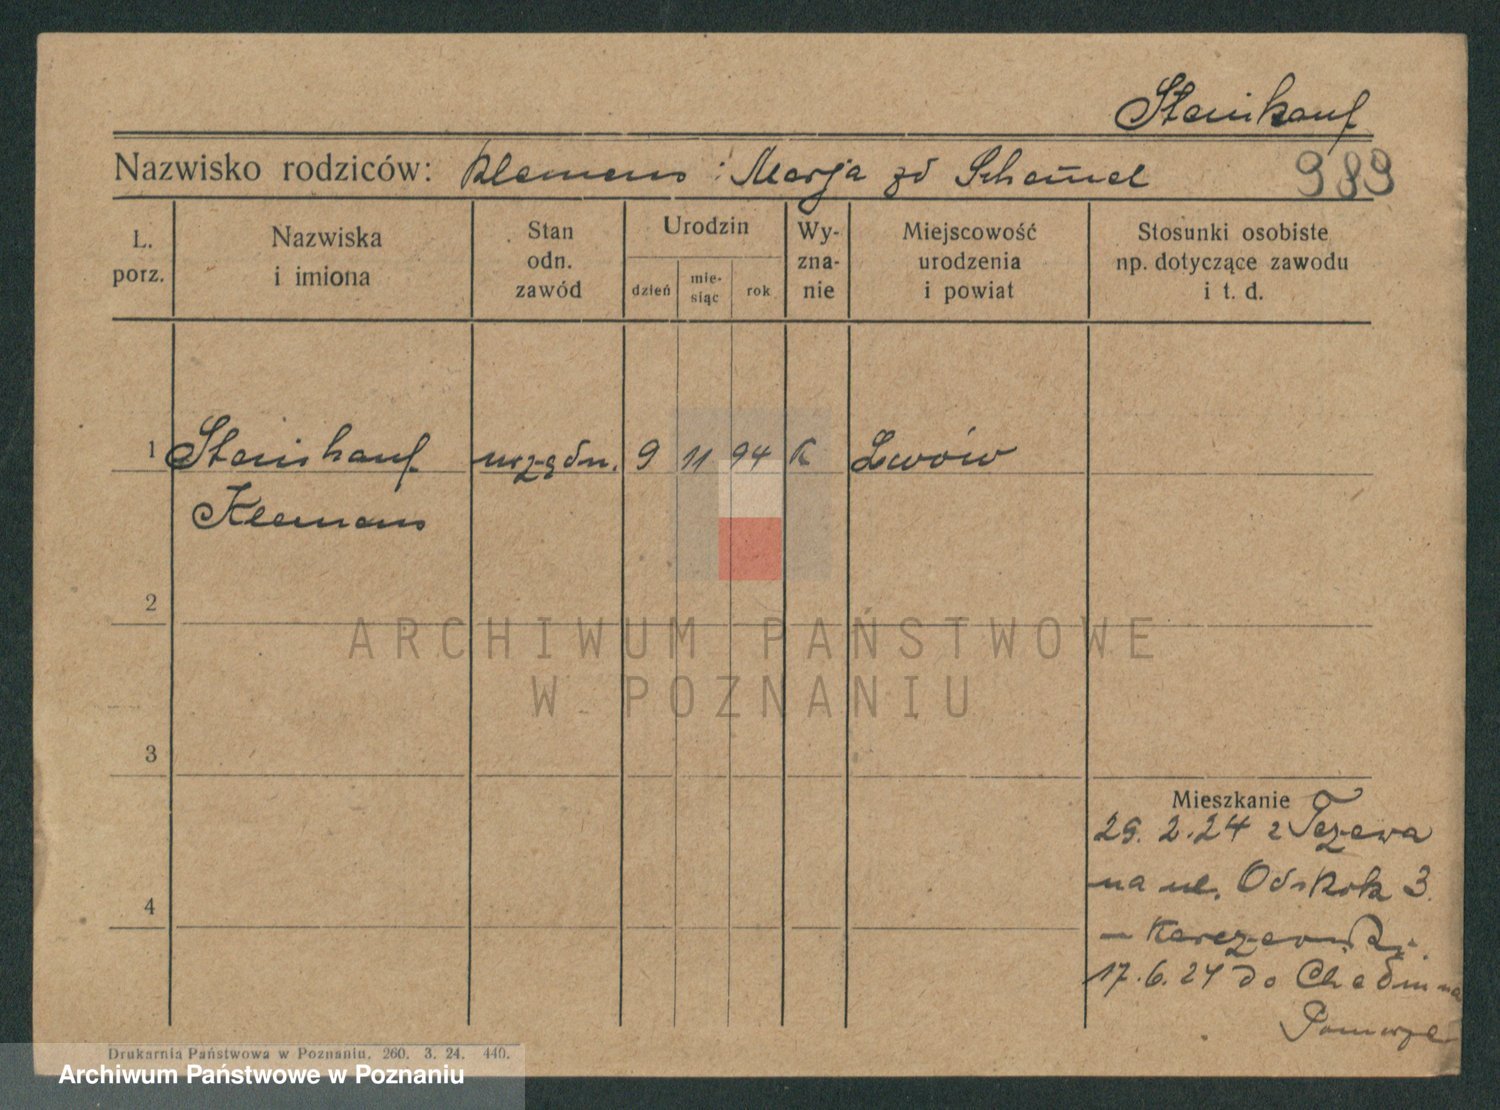 Stenikauf
Nazwisko rodziców: Klemens i Marja zd Schamel 989
L. porz.
Nazwiska i imiona
Stan odn. zawód
Urodzin
dzień
mie-siąc
rok
Wy-zna-nie
Miejscowość urodzenia i powiat
Stosunki osobiste np. dotyczące zawodu i t. d.
1 urzędn. 9 11 94 K Lwów
Klemens
2
ARCHIWUM PAŃSTWOWE
W POZNANIU
3
4
Mieszkanie
29. 2. 24 z Tczewa
na ul. Odskok 3.
17. 6. 24 do Chełmna
Pomorze
Drukarnia Państwowa w Poznaniu. 260. 3. 24. 440.
Archiwum Państwowe w Poznaniu